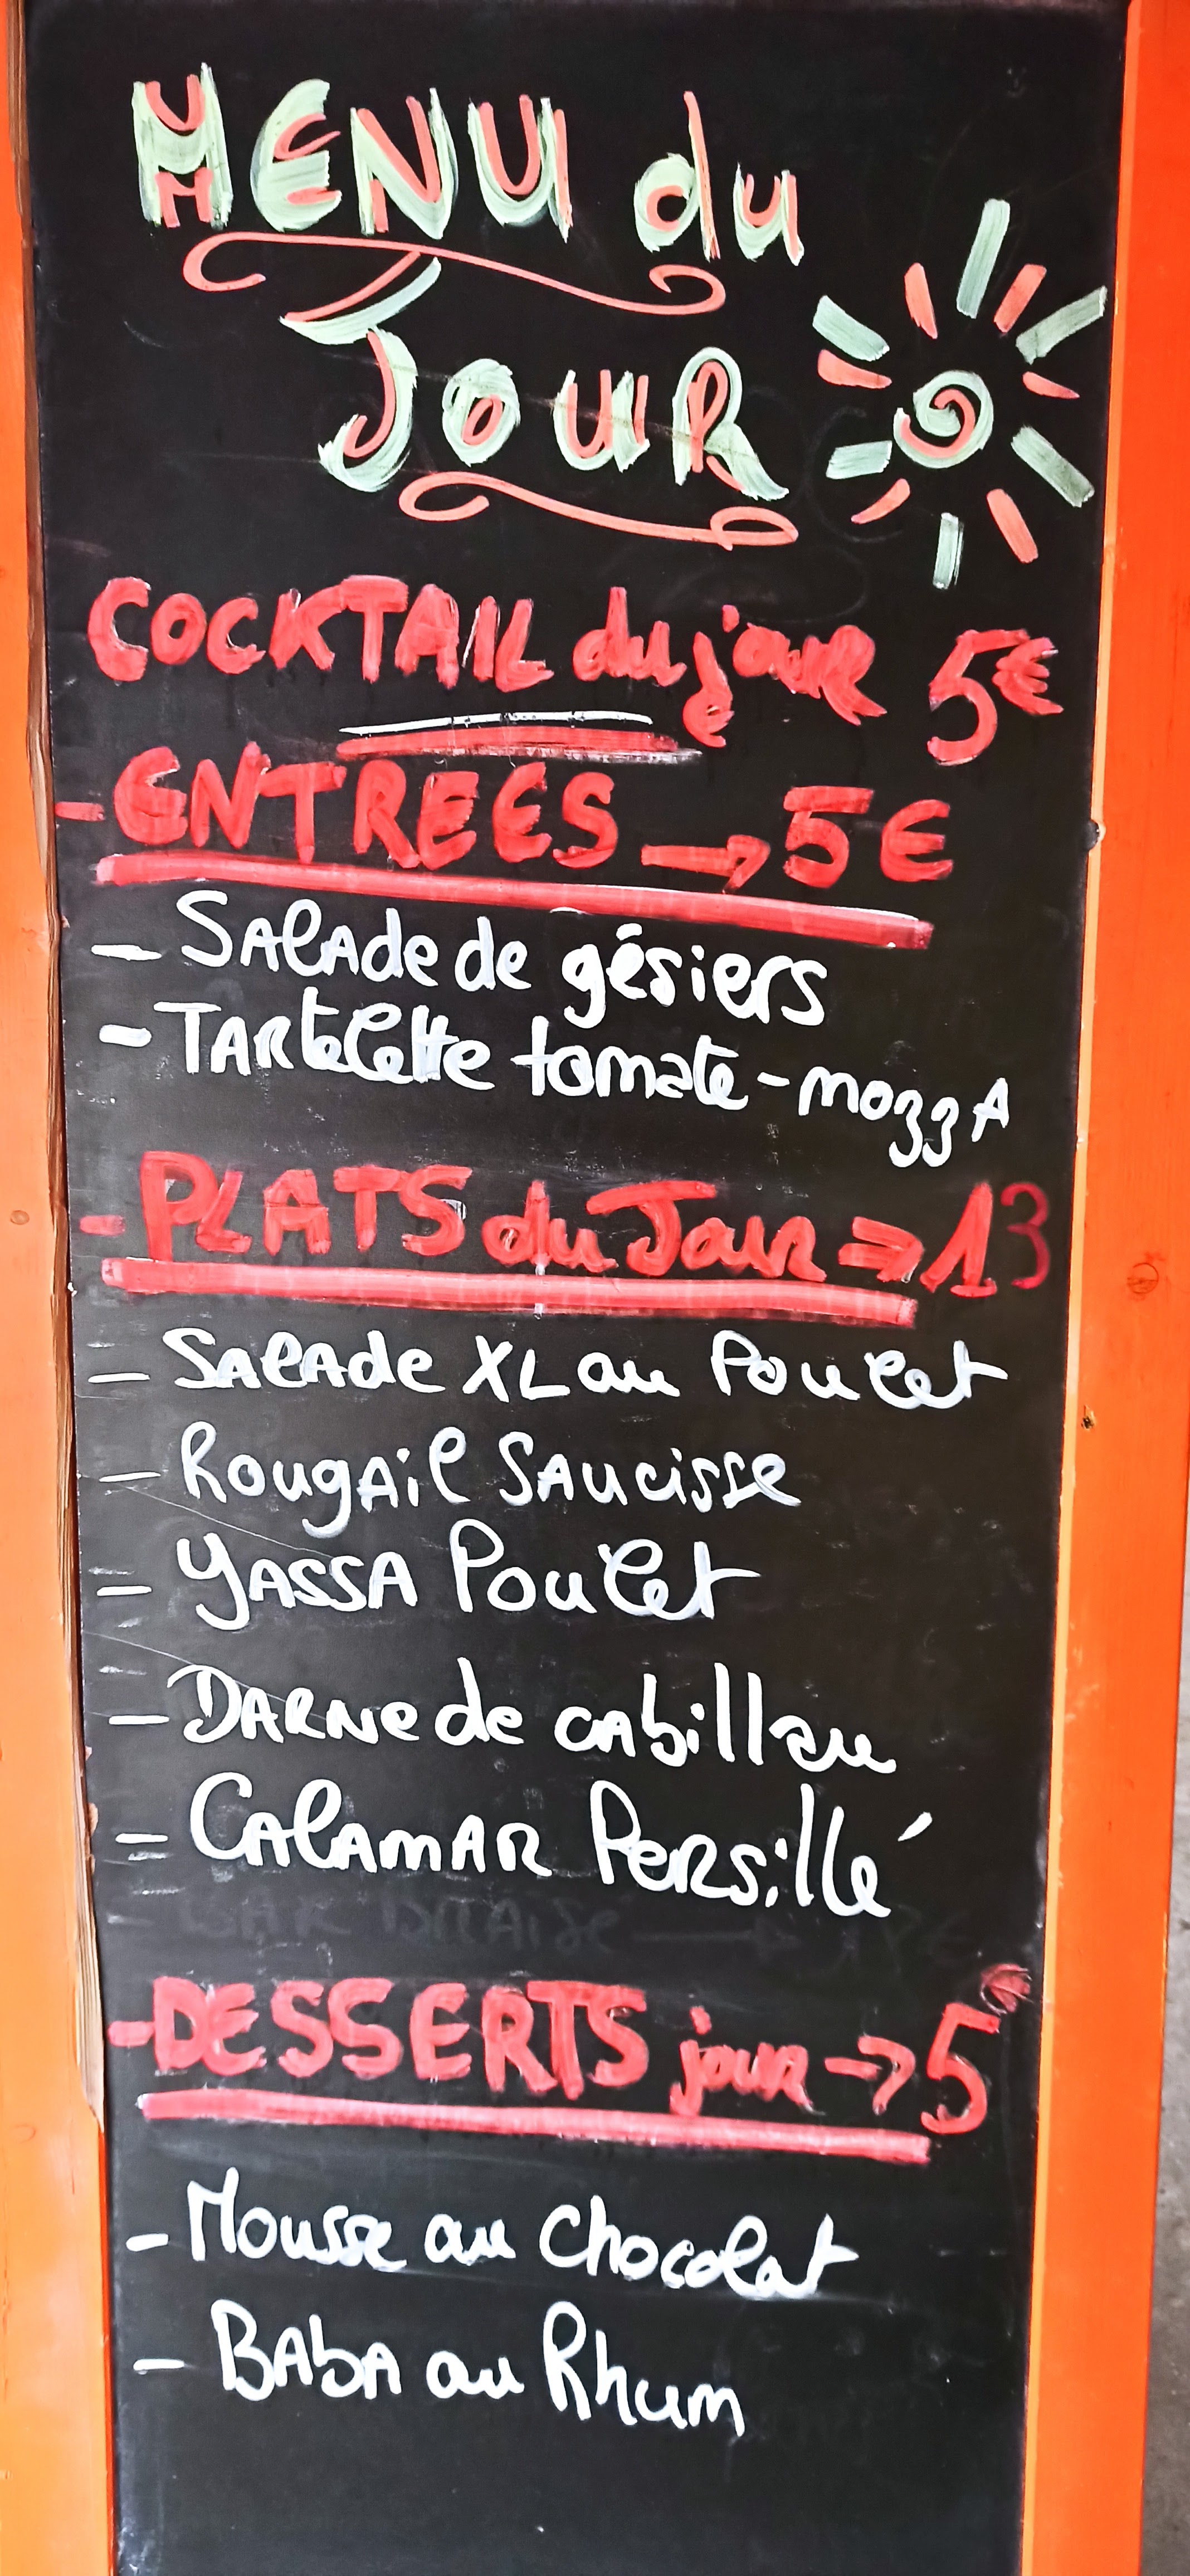 MENU du
JOUR
COCKTAIL du jour 5€
- ENTREES → 5€
- Salade de gésiers
- Tartelette tomate-mozza
- PLATS du Jour ⇒ 13
- Salade XL au Poulet
- Rougail Saucisse
- Yassa Poulet
- Darne de cabillau
- Calamar Persillé
- DESSERTS jour → 5€
- Mousse au chocolat
- Baba au Rhum